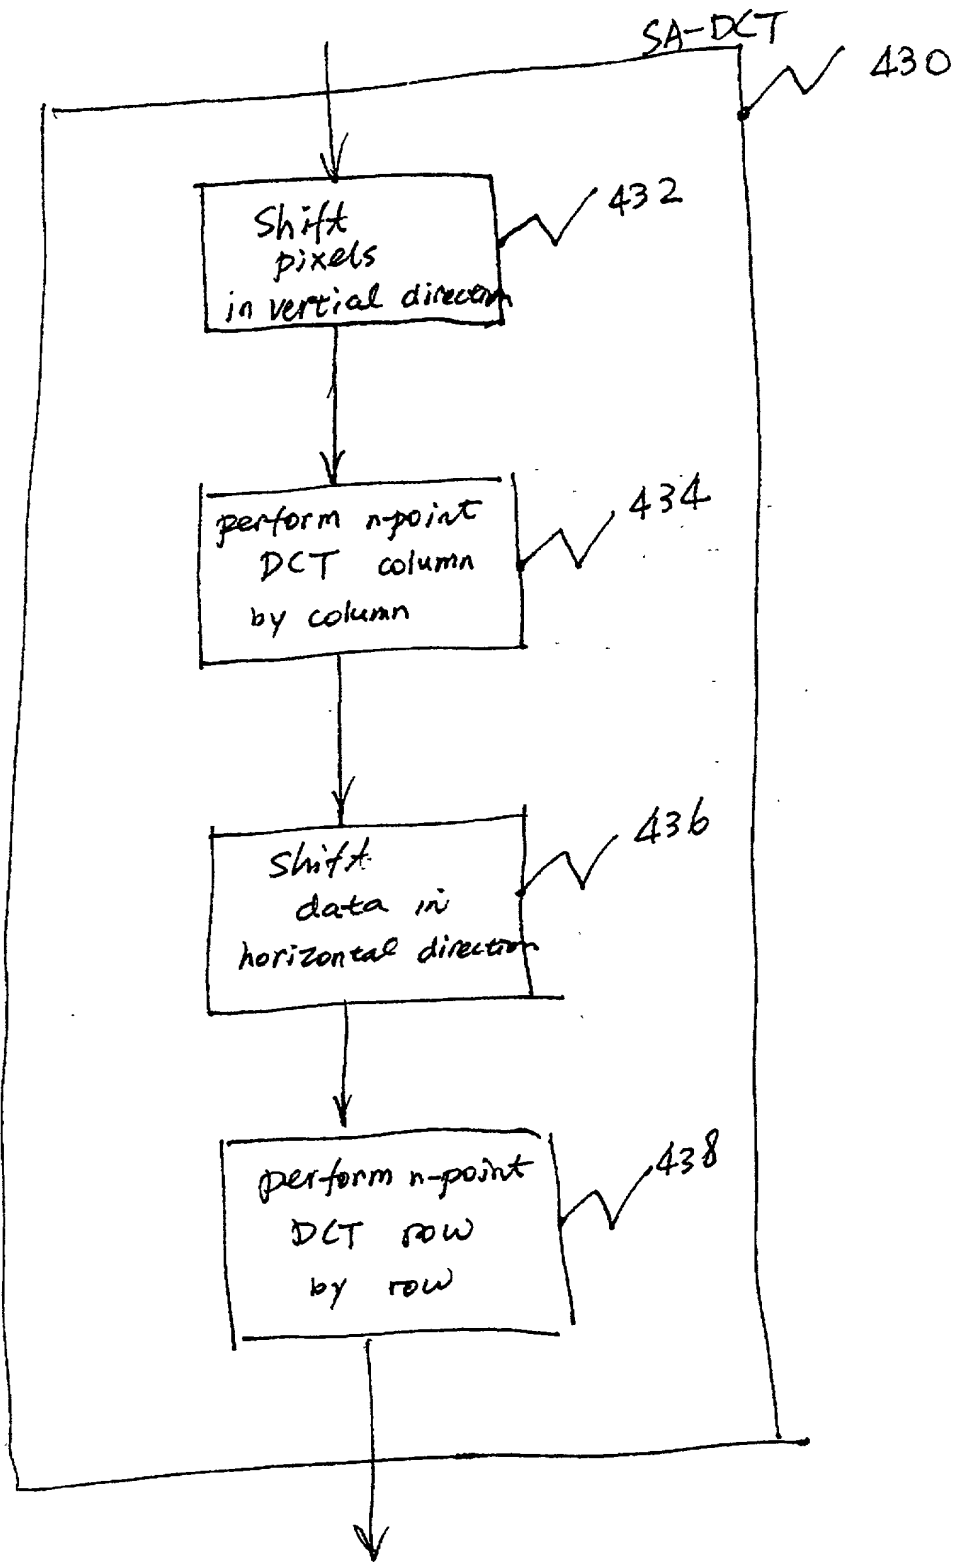 SA-DCT
430
432
Shift
pixels
in vertial direction
434
perform n-point
DCT column
by column
436
Shift
data in
horizontal direction
438
perform n-point
DCT row
by row